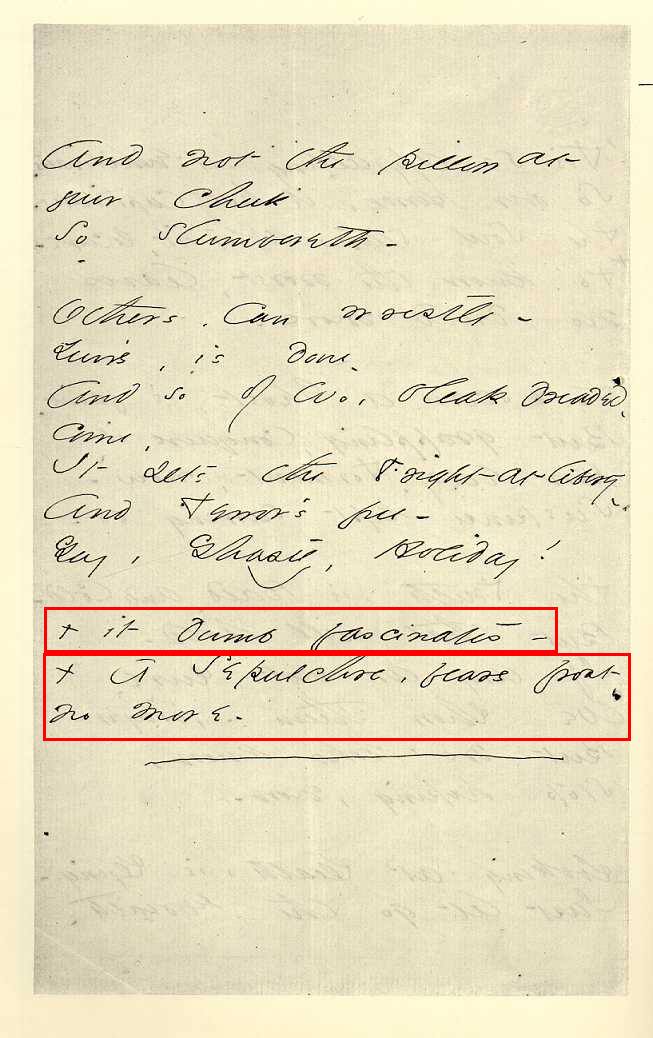 And not the pillow at
your Cheek
So Slumbereth -
Others, Can wrestle -
Your's, is done
And so of Wo, bleak dreaded,
come,
It sets the Fright at liberty
And Terror's free -
Gay, Ghastly, Holiday!
+ it dumb fascinates -
+ A Sepulchre, fears frost,
no more -